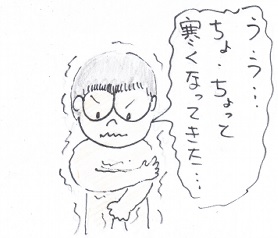 う・う・・・
ちょ・ちょって
寒くなってきた・・・